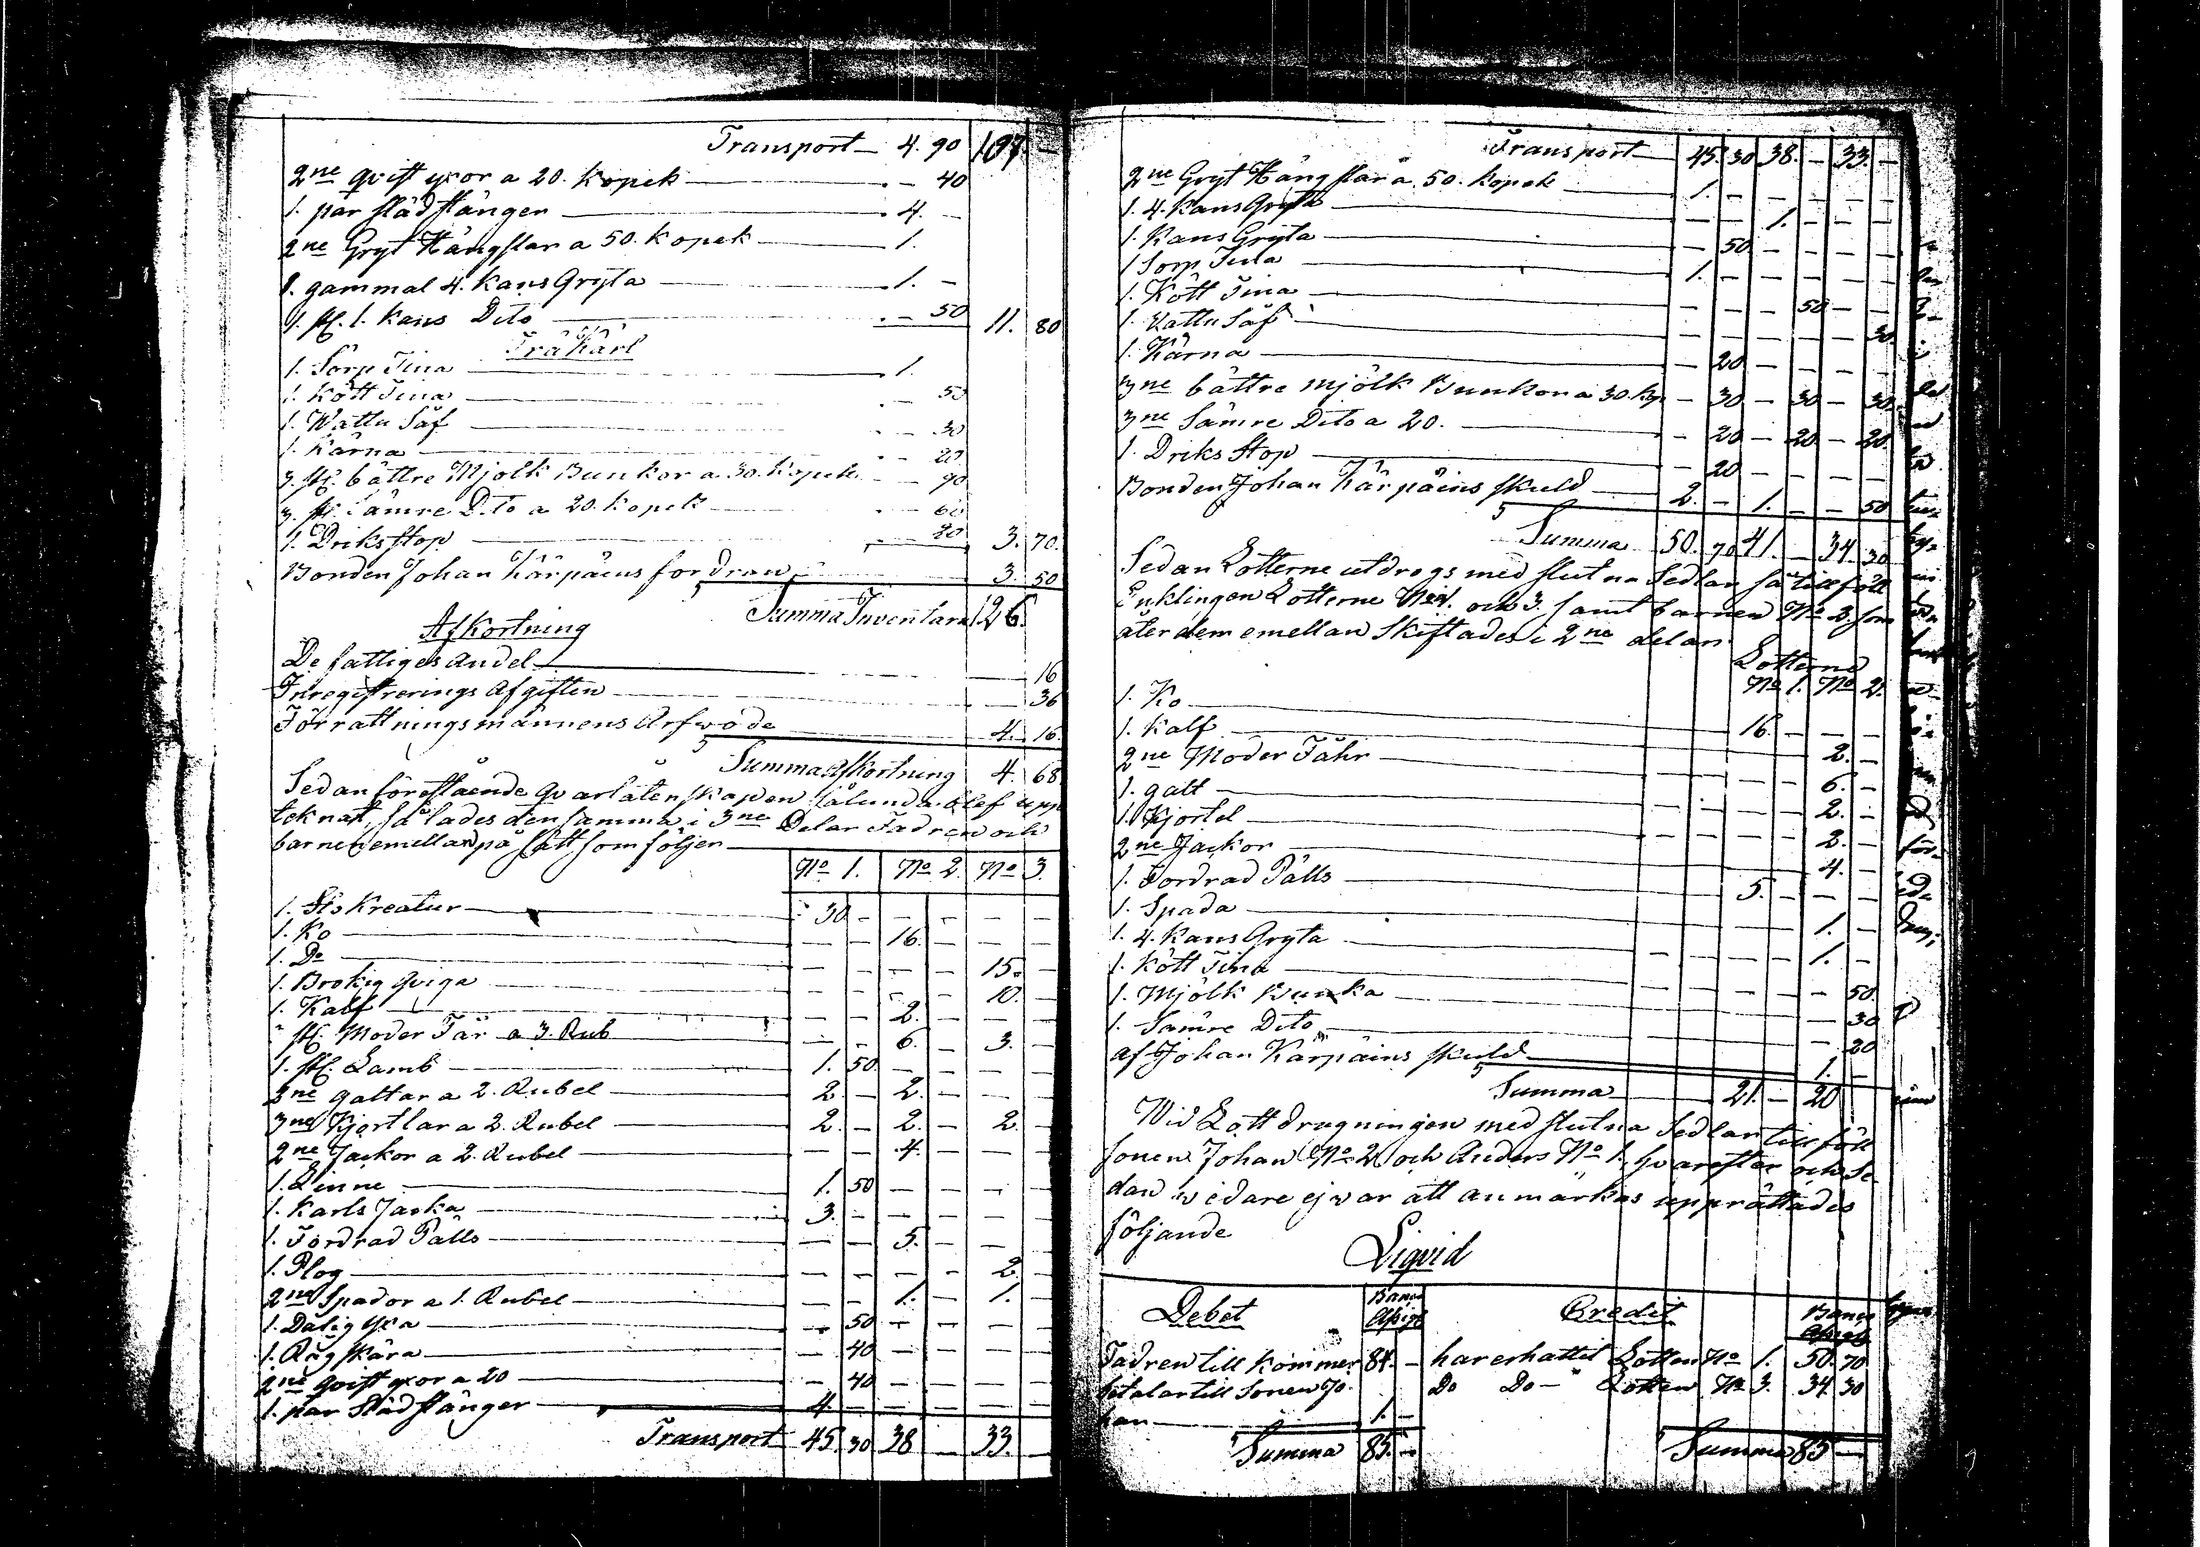 Transport — 4. 90 107. —
2ne qvist yxor a 20. Kopek — . — 40
1. par slädstänger — 4. —
2ne Gryt Hängslar a 50. Kopek — 1.
1. gammal 4. Kans Gryta — 1. —
1. st. 1. Kans Dito — . — 50 11. 80
Trä Kärl
1. Sörp Tina — 1.
1. Kött Tina . — 50
1. Wattu Såf . — 30
1. Kärna . — 20
3. st. bättre Mjölk Bunkor a 30. Kopek — 90
3. st. Sämre Dito a 20. Kopek . — 60
1. Driks stop . — 20 3. 70.
Bonden Johan Kärpäins fordran 3. 50
Summa Inventarii 126.
Afkortning
De fattiges andel — 16
Inregistrerings Afgiften — 36
Förrättningsmännens Arfwode 4. 16.
Summa Afkortning 4. 68
Sedan förestående qvarlåtenskapen sålunda blef upp
teknat, så lades den samma i 3ne Delar Fadren och
barnen emellan på sätt som följer
No 1. No 2. No 3.
1. Stokreatur — 30 — — — — —
1. Ko — — — 16. — — —
1. Do — — — — — 15. —
1. Brokig qviga — — — — — 10. —
1. Kalf — — — 2. — — —
st. Moder Får a 3. Rub — — 6. — 3. —
1. st. Lamb — 1. 50 — — — —
2ne galtar a 2. Rubel — 2. — 2. — — —
3ne Kjortlar a 2. Rubel — 2. — 2. — 2. —
2ne Jackor a 2. Rubel — — — 4. — — —
1. Linne — 1. 50 — — — —
1. Karls Jacka — 3. — — — — —
1. Fordrad Pälls — — — 5. — — —
1. Plog — — — — — 2 —
2ne Spador a 1. Rubel — — — 1. — 1. —
1. Dålig Yxa — — 50 — — — —
1. Råg skära — — 40 — — — —
2ne qvist yxor a 20 — — 40 — — — —
1. par Slädstänger — 4. — — — — —
Transport 45. 30 38 — 33. —
Transport — 45. 30 38. — 33. —
2ne Gryt Hängslar a 50. Kopek — 1. — — — — —
1. 4. Kans Gryta — — — 1. — — —
1. Kans Gryta — — 50 — — — —
1 Sörp Tina — 1. — — — — —
1. Kött Tina — — — — 50 — —
1. Wattu Såf — 30.
1. Kärna — — 20 — — — —
3ne bättre mjölk Bunkor a 30. Kop — 30 — 30 — 30.
3ne Sämre Dito a 20. — — 20 — 20 — 20.
1. Driks stop — — 20 — — — —
Bonden Johan Kärpäins skuld — 2. — 1. — — 50
Summa 50. 70 41. — 34. 30
Sedan Lotterne utdrogs med slutna Sedlar så tillföll
Enklingen Lotterne No 1. och 3. samt barnen No 2 som
åter dem emellan skiftades i 2ne delar
Lotterne
No 1. No 2.
1. Ko — 16. — — —
1. Kalf — 2. —
2ne Moder Fåhr — 6. —
1. galt — 2. —
1. Kjortel — 2. —
2ne Jackor — 4. —
1. Fordrad Pälls — 5. — — —
1. Spada — 1. —
1. 4. Kans Gryta — 1. —
1. Kött Tina — — 50
1. Mjölk Bunka — — 30
1. Sämre Dito — — 20
af Johan Kärpäins skuld — 1. —
Summa — 21. — 20
Wid Lottdragningen med slutna Sedlar tillföll
sonen Johan No 2 och Anders No 1. hvarefter och Se
dan widare ej war att anmärkas upprättades
följande
Liqvid
Debet Banco Assign Credit Banco Assign
Fadren till kommer 84. — har erhållit Lotten No 1. 50. 70
betalar till Sonen Jo- Do Do — Lotten No 3. 34. 30
han — 1. —
Summa 85. — Summa 85 —